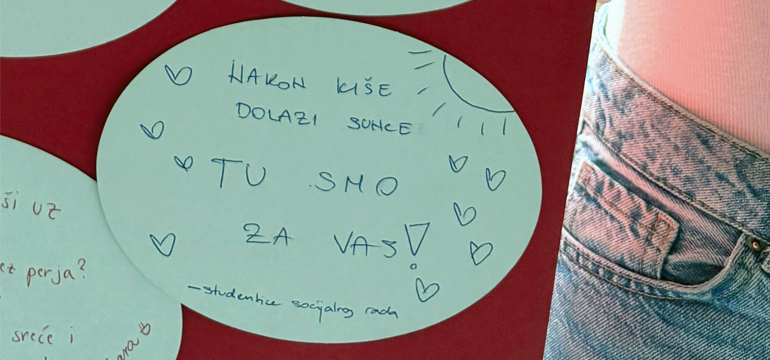 NAKON KIŠE
DOLAZI SUNCE
TU SMO
ZA VAS!
- studentice socijalnog rada
ši uz
ez perja?
sreće i